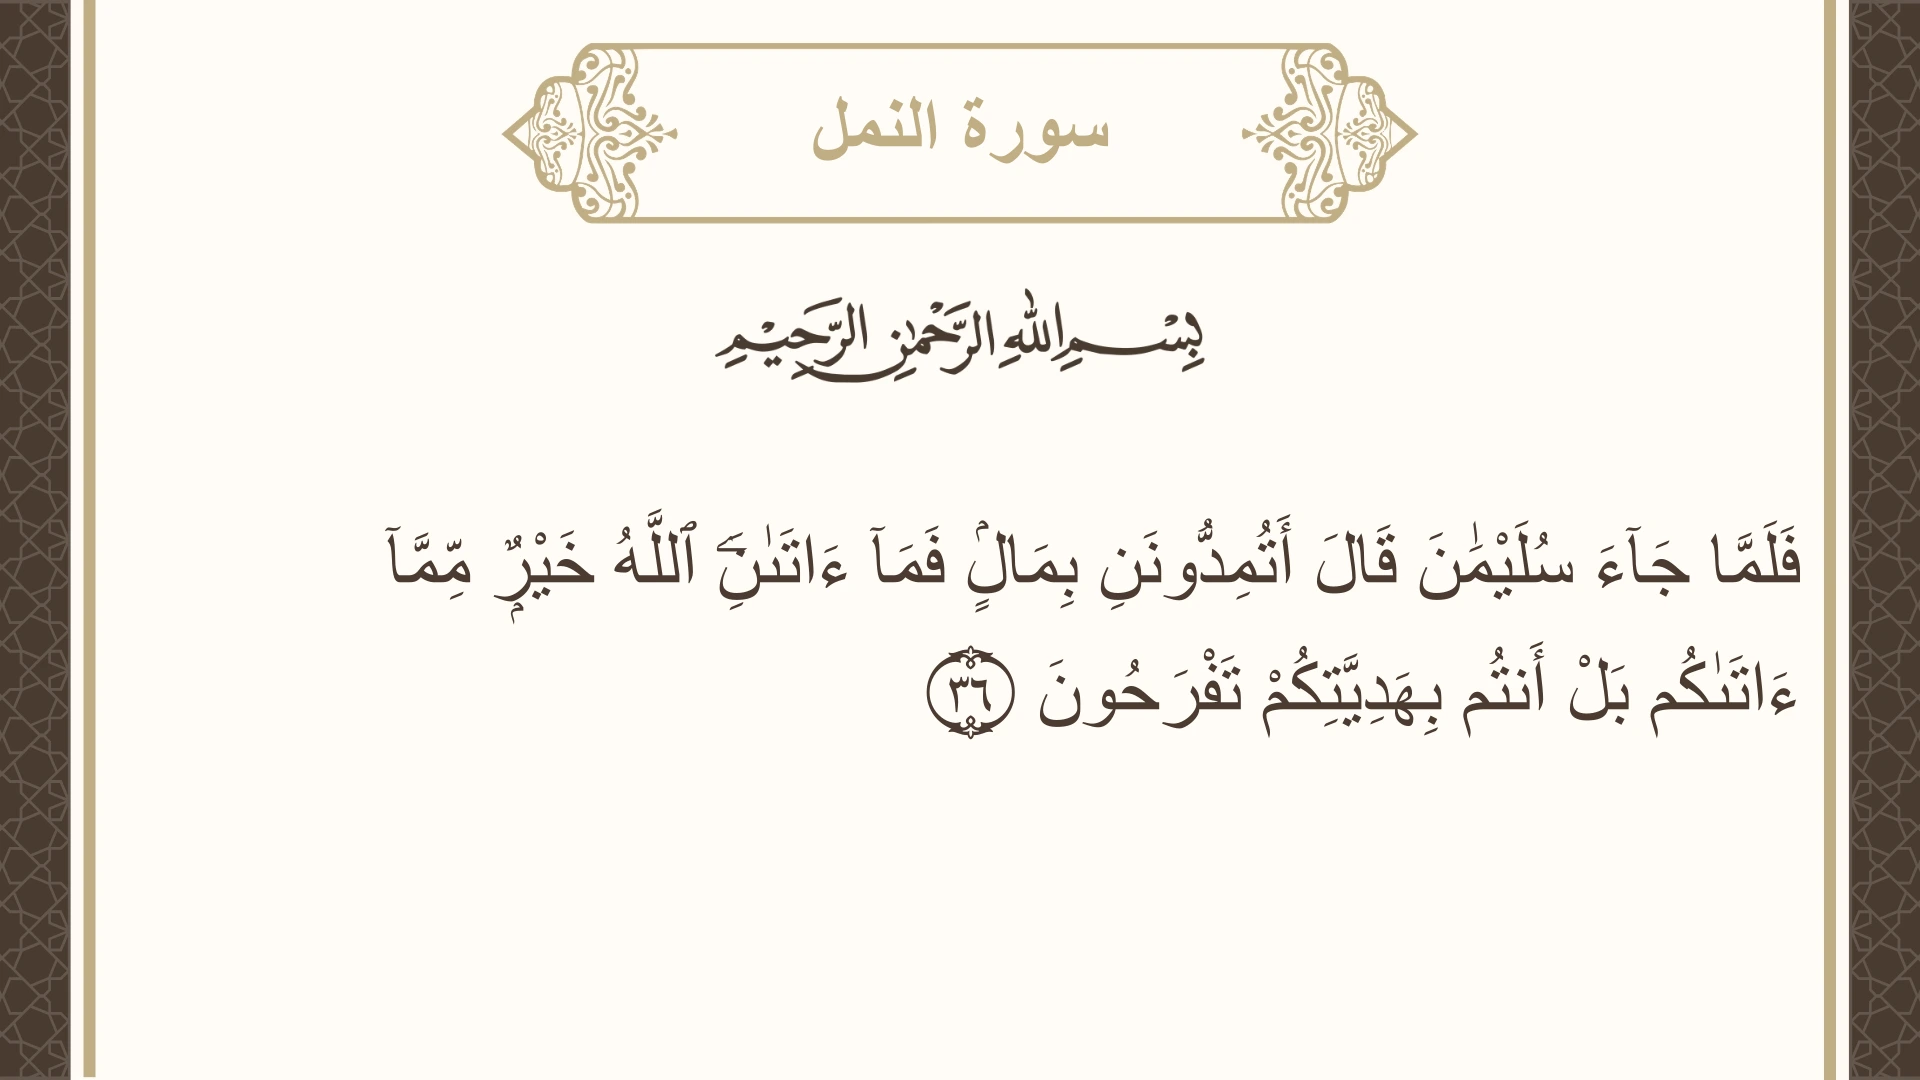 سورة النمل
بِسْمِ اللهِ الرَّحْمٰنِ الرَّحِيْمِ
فَلَمَّا جَآءَ سُلَيْمَٰنَ قَالَ أَتُمِدُّونَنِ بِمَالٍۢ فَمَآ ءَاتَىٰنِۦَ ٱللَّهُ خَيْرٌۭ مِّمَّآ
ءَاتَىٰكُم بَلْ أَنتُم بِهَدِيَّتِكُمْ تَفْرَحُونَ ٣٦